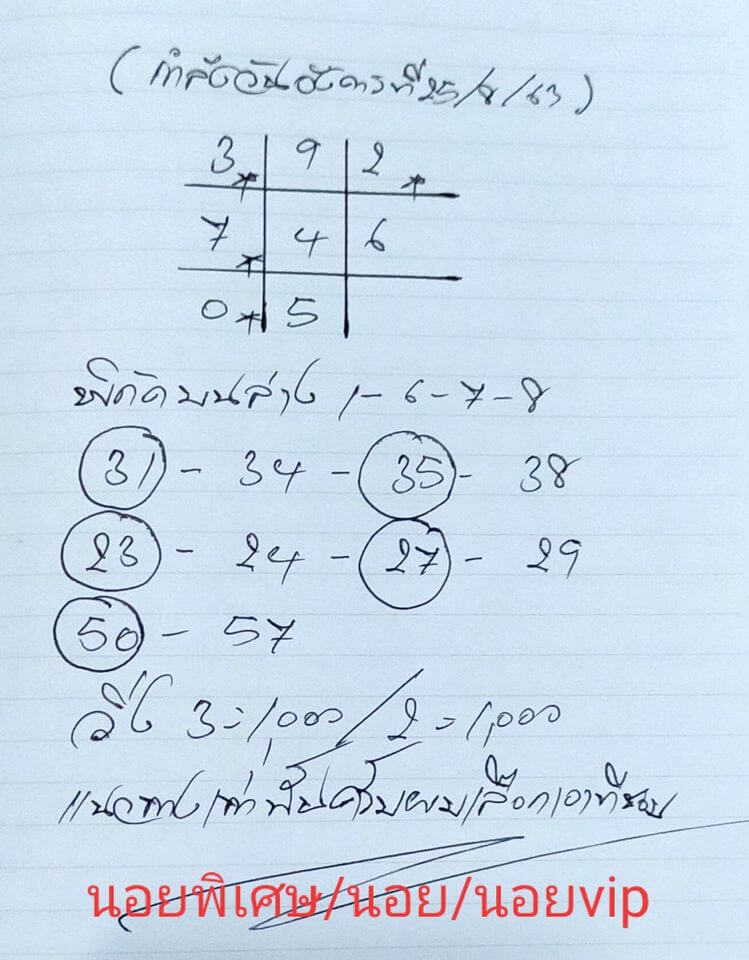 (กำลังวันอังคารที่25/8/63)
3* 9 2*
7* 4 6
0* 5
พิกัดบนล่าง 1-6-7-8
31 - 34 - 35 - 38
23 - 24 - 27 - 29
50 - 57
วิ่ง 3=1,000/2=1,000
แนวทางเท่านั้นครับผมเลือกเอาที่ชอบ
นอยพิเศษ/นอย/นอยvip